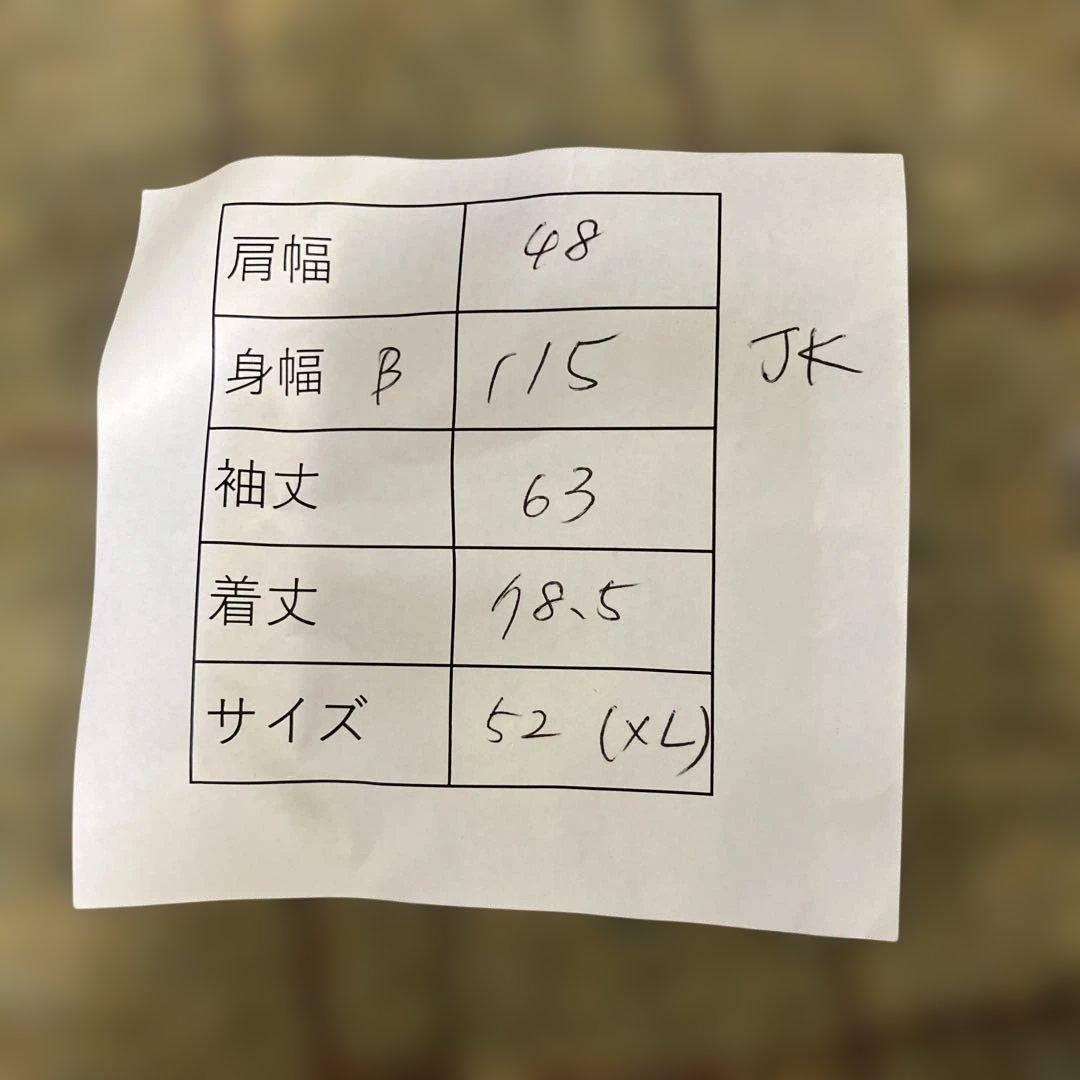 肩幅 48
身幅 B 115
JK
袖丈 63
着丈 78.5
サイズ 52 (XL)